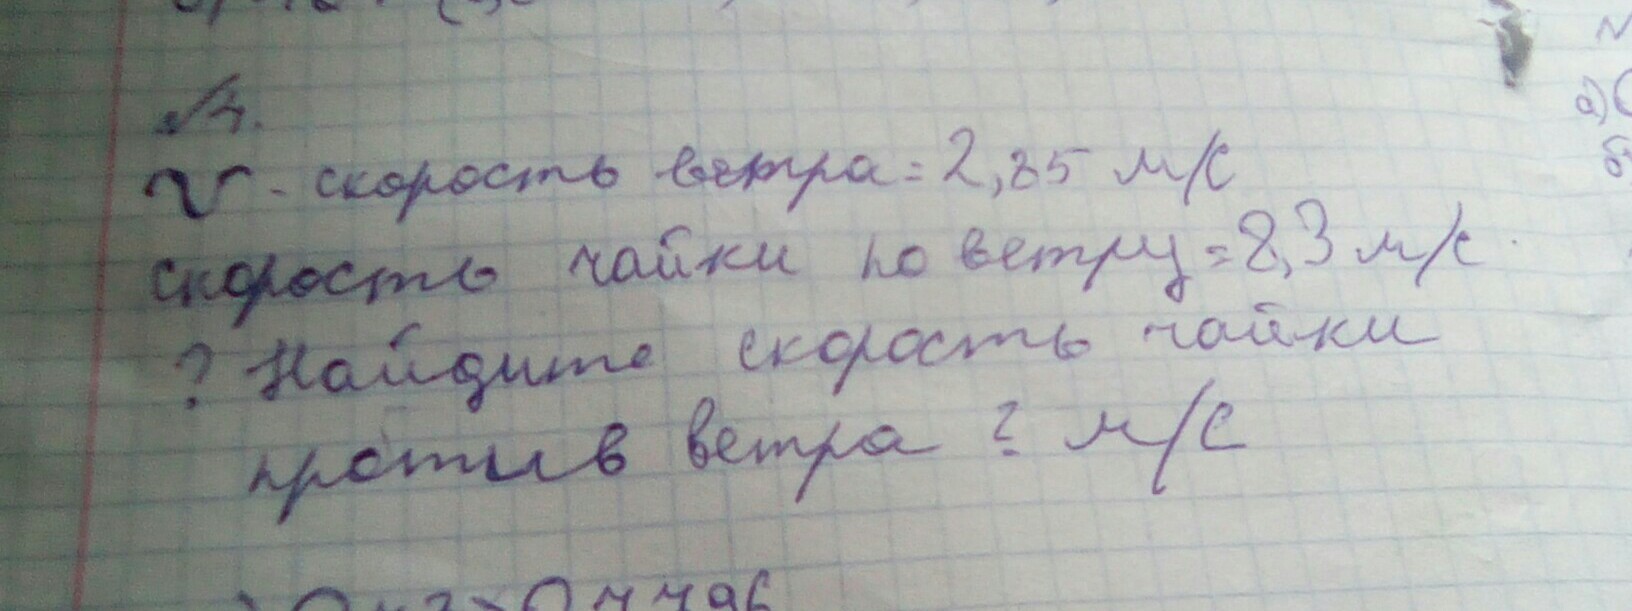 №4.
V - скорость ветра = 2,85 м/с
скорость чайки по ветру = 8,3 м/с.
? Найдите скорость чайки
против ветра ? м/с